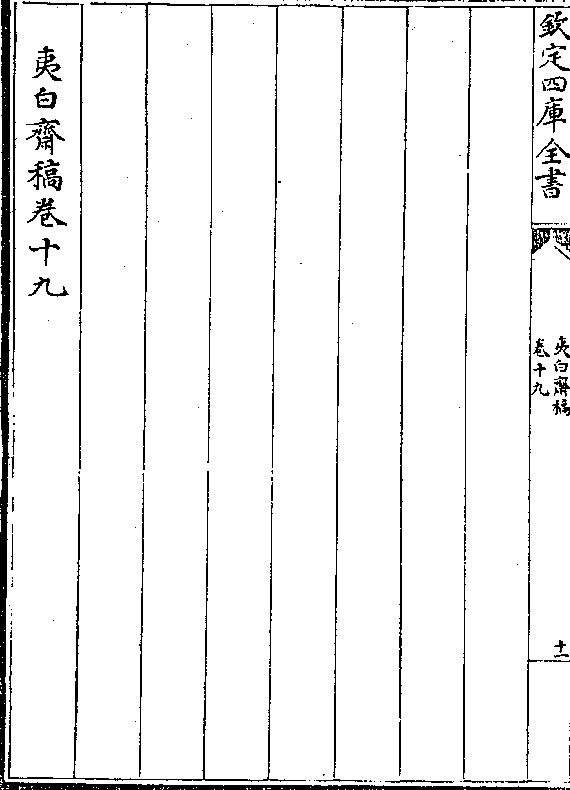 欽定四庫全書
夷白齋稿
卷十九
十一
夷白齋稿卷十九